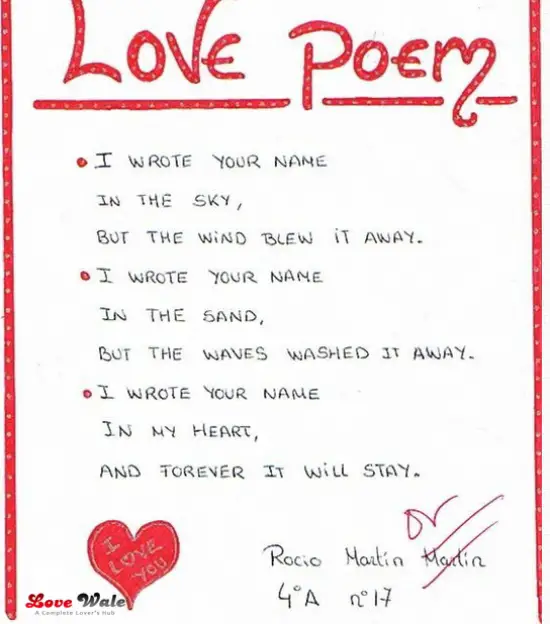 LOVE POEM
• I WROTE YOUR NAME
IN THE SKY,
BUT THE WIND BLEW IT AWAY.
• I WROTE YOUR NAME
IN THE SAND,
BUT THE WAVES WASHED IT AWAY.
• I WROTE YOUR NAME
IN MY HEART,
AND FOREVER IT WILL STAY.
I
LOVE
YOU
Rocio Martin Martin
4°A n°17
Love Wale
A Complete Lover's Hub